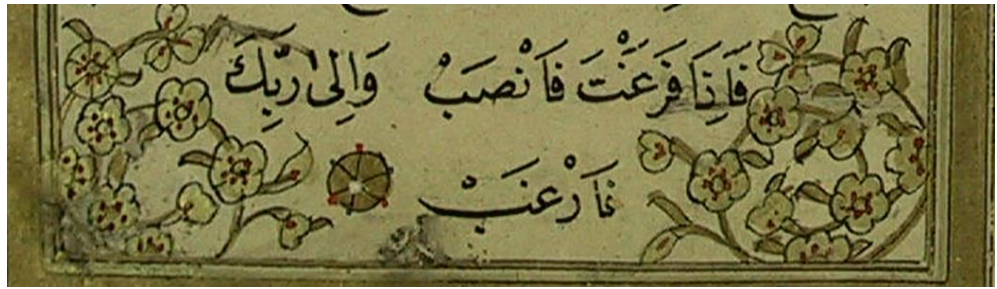 فَاِذَا فَرَغْتَ فَانْصَبْ وَاِلٰى رَبِّكَ
فَارْغَبْ